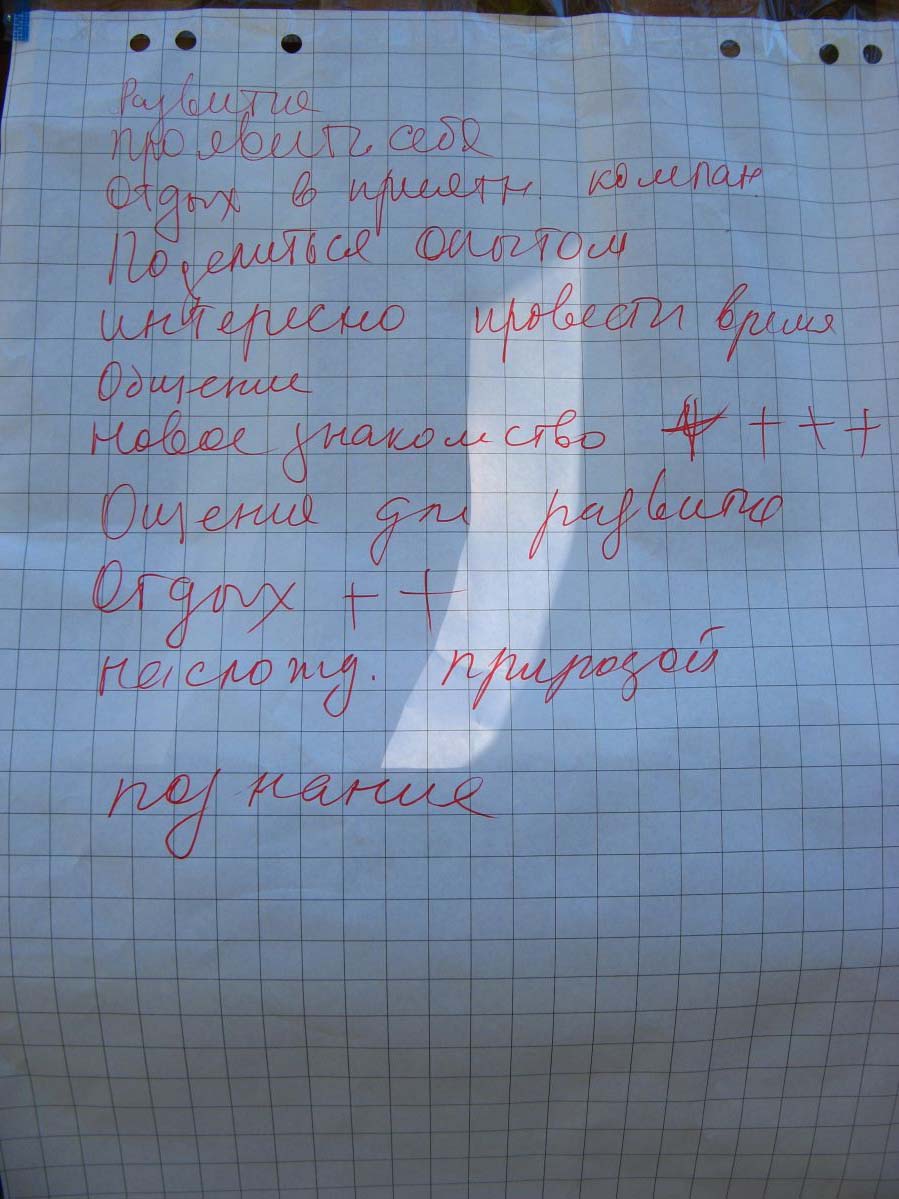 Развитие
проявить себя
Отдых в приятн. компан.
Поделиться опытом
интересно провести время
Общение
новое знакомство + + + +
Ощения для развитие
Отдых + +
насложд. природой
познание